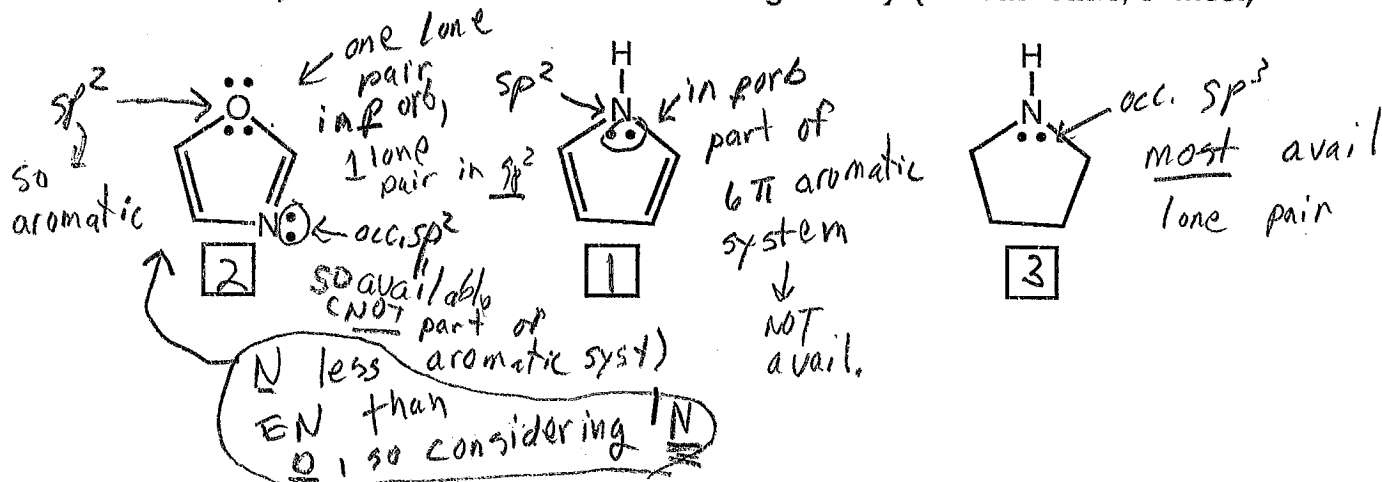 one lone
pair
in p orb,
1 lone
pair in sp²
sp²
so
aromatic
O
N
occ. sp²
so available
(NOT part of
aromatic syst)
2
N less
EN than
O, so considering N
H
N
sp²
in p orb
part of
6 π aromatic
system
NOT
avail.
1
H
N
occ. sp³
most avail
lone pair
3